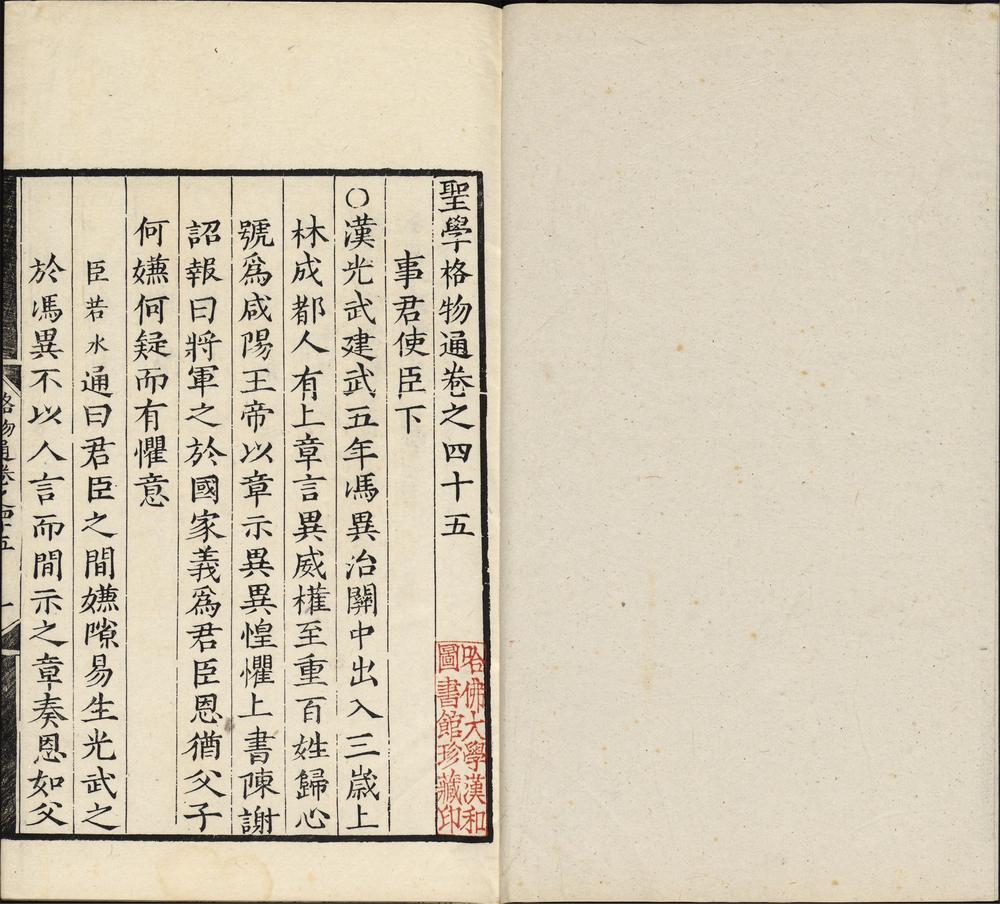 聖學格物通卷之四十五
事君使臣下
○漢光武建武五年馮異治關中出入三歲上
林成都人有上章言異威權至重百姓歸心
號爲咸陽王帝以章示異異惶懼上書陳謝
詔報曰將軍之於國家義爲君臣恩猶父子
何嫌何疑而有懼意
臣若水通曰君臣之間嫌隙易生光武之
於馮異不以人言而間示之章奏恩如父
格物通卷之四十五
一
哈佛大學漢和
圖書館珍藏印